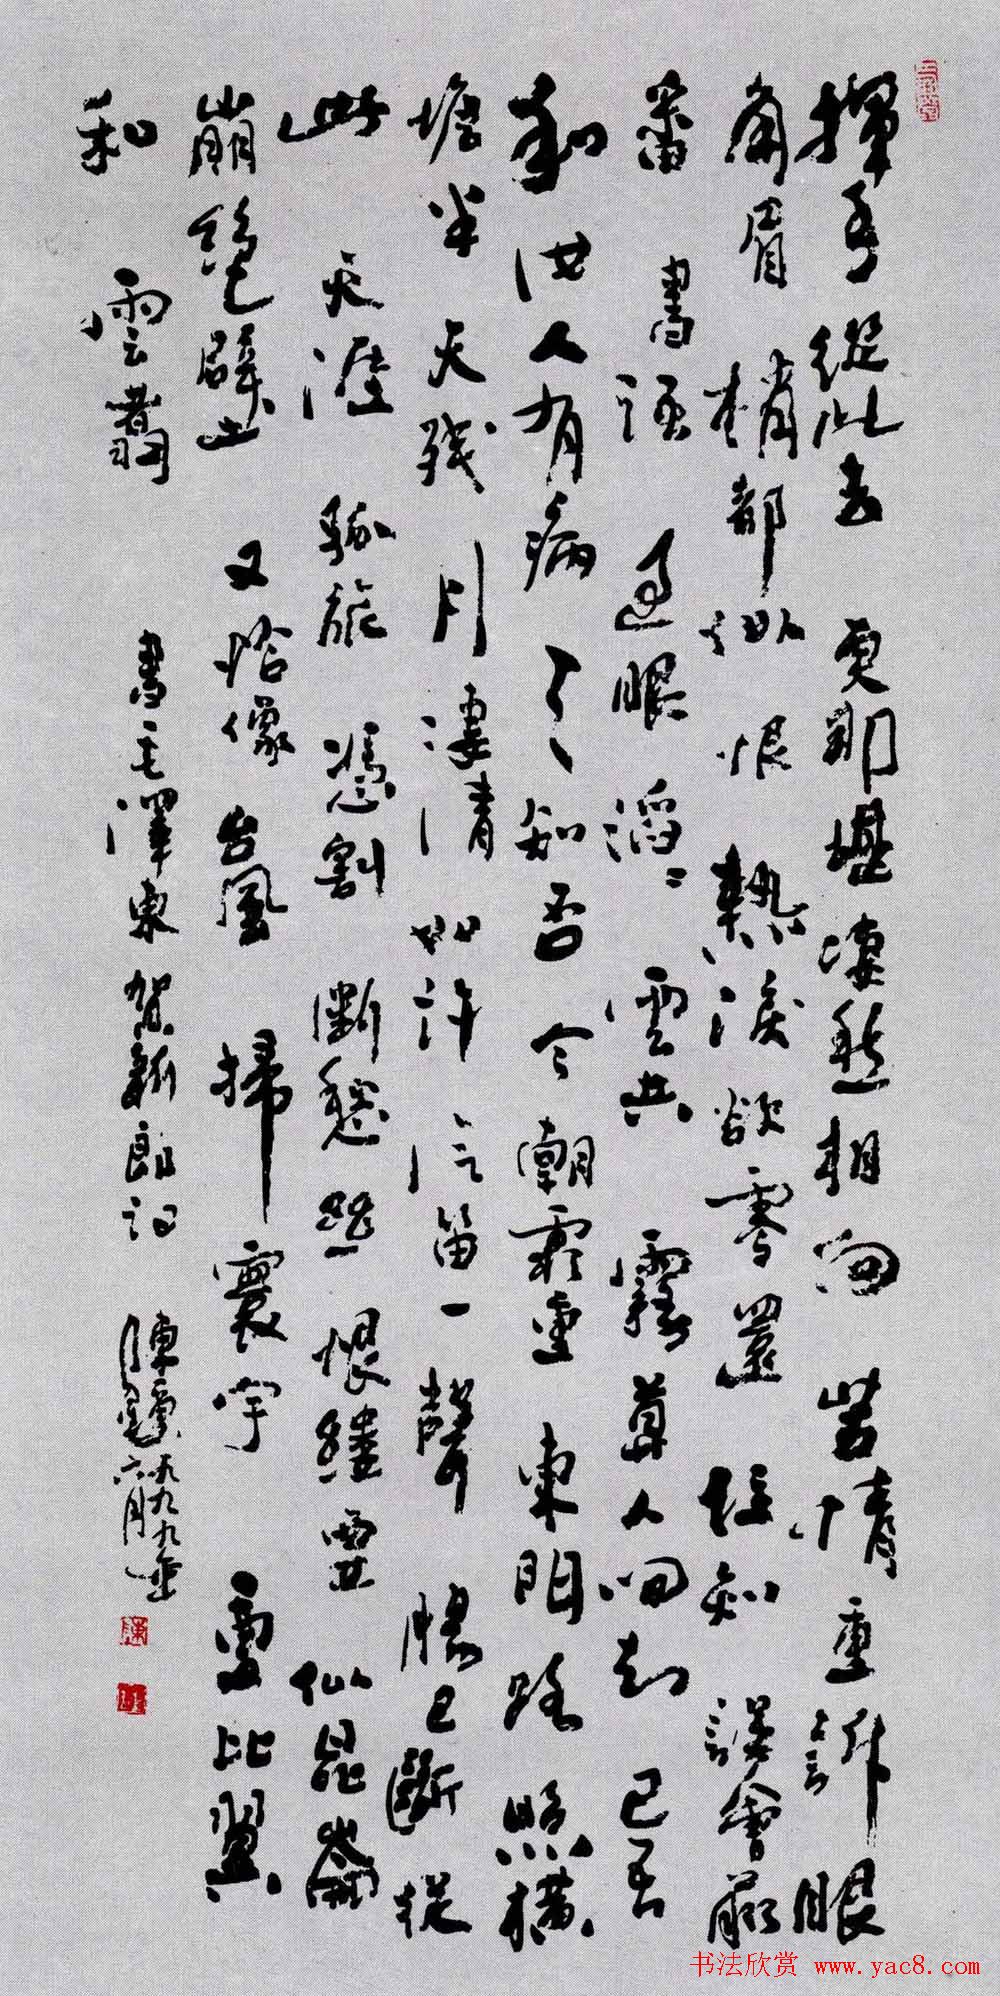 揮手從此去更那堪凄然相向苦情重訴眼
角眉梢都似恨熱淚欲零還住知誤會前
番書語過眼滔滔雲共霧算人間知己吾
和汝人有病天知否今朝霜重東門路照橫
塘半天残月凄清如許汽笛一聲腸已斷從
此天涯孤旅憑割斷愁絲恨縷要似崑崙
崩絕壁又恰像台風掃寰宇重比翼
和雲翥
書毛澤東賀新郎詞
陳
一九九九年
六月
书法欣赏 www.yac8.com